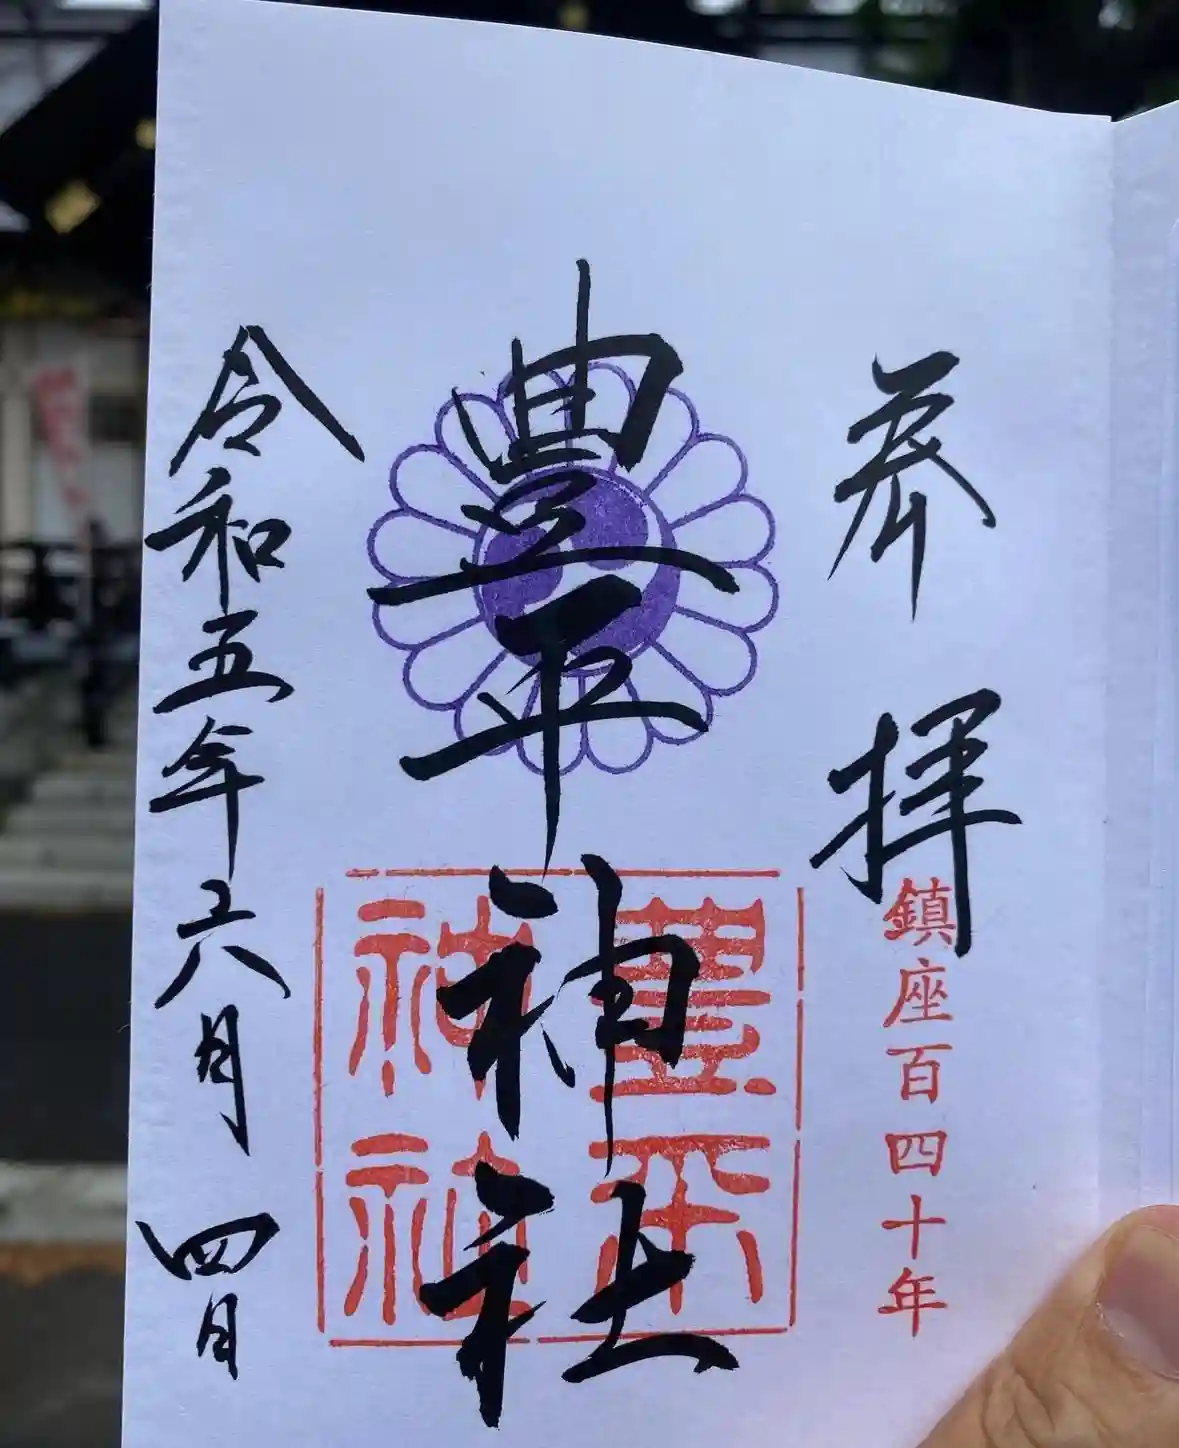 奉拝
鎮座百四十年
豊平神社
豊平
神社
令和五年六月四日